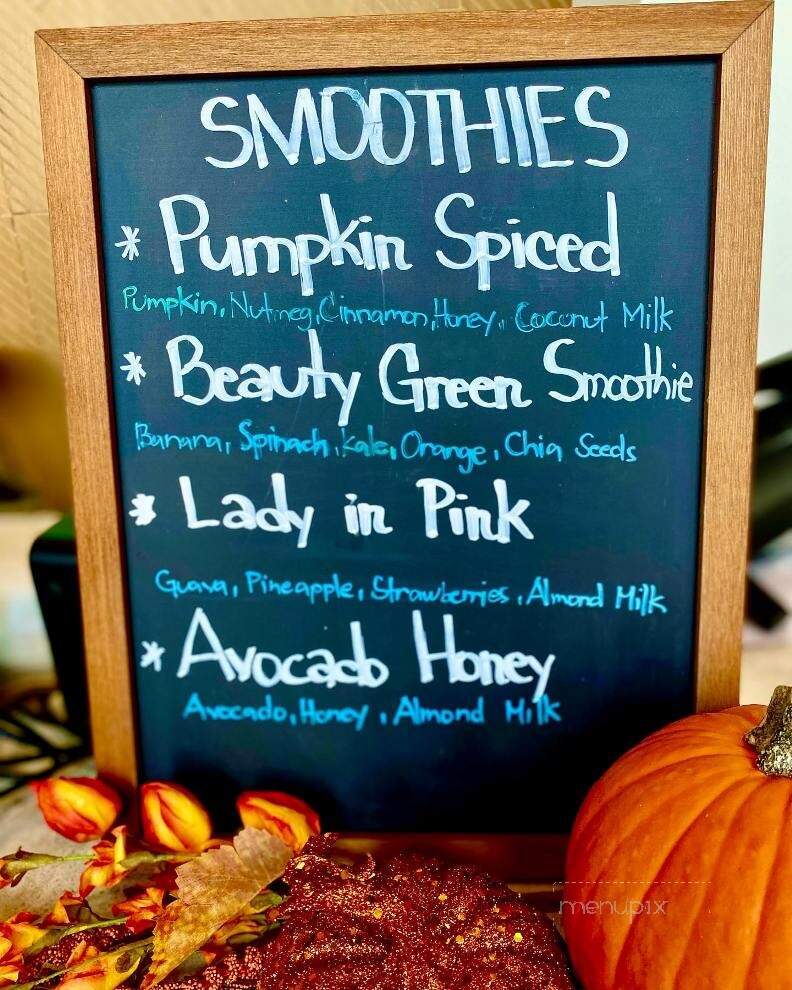 SMOOTHIES
* Pumpkin Spiced
Pumpkin, Nutmeg, Cinnamon, Honey, Coconut Milk
* Beauty Green Smoothie
Banana, Spinach, Kale, Orange, Chia Seeds
* Lady in Pink
Guava, Pineapple, Strawberries, Almond Milk
* Avocado Honey
Avocado, Honey, Almond Milk
menupix